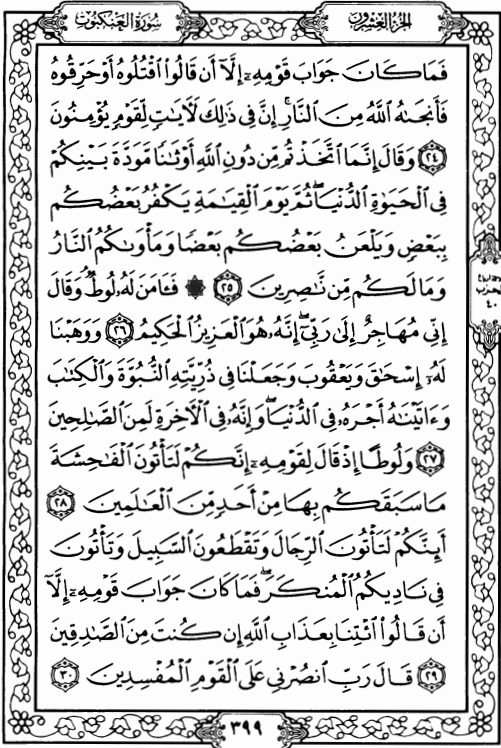 سُورَةُ العَنكبُوت
الجُزْءُ العِشْرُونَ
فَمَا كَانَ جَوَابَ قَوْمِهِۦٓ إِلَّآ أَن قَالُوا۟ ٱقْتُلُوهُ أَوْ حَرِّقُوهُ
فَأَنجَىٰهُ ٱللَّهُ مِنَ ٱلنَّارِ ۚ إِنَّ فِى ذَٰلِكَ لَـَٔايَـٰتٍ لِّقَوْمٍ يُؤْمِنُونَ
٢٤ وَقَالَ إِنَّمَا ٱتَّخَذْتُم مِّن دُونِ ٱللَّهِ أَوْثَـٰنًا مَّوَدَّةَ بَيْنِكُمْ
فِى ٱلْحَيَوٰةِ ٱلدُّنْيَا ۖ ثُمَّ يَوْمَ ٱلْقِيَـٰمَةِ يَكْفُرُ بَعْضُكُم
بِبَعْضٍ وَيَلْعَنُ بَعْضُكُم بَعْضًا وَمَأْوَىٰكُمُ ٱلنَّارُ
وَمَا لَكُم مِّن نَّـٰصِرِينَ ٢٥ ۞ فَـَٔامَنَ لَهُۥ لُوطٌ ۘ وَقَالَ
إِنِّى مُهَاجِرٌ إِلَىٰ رَبِّىٓ ۖ إِنَّهُۥ هُوَ ٱلْعَزِيزُ ٱلْحَكِيمُ ٢٦ وَوَهَبْنَا
لَهُۥٓ إِسْحَـٰقَ وَيَعْقُوبَ وَجَعَلْنَا فِى ذُرِّيَّتِهِ ٱلنُّبُوَّةَ وَٱلْكِتَـٰبَ
وَءَاتَيْنَـٰهُ أَجْرَهُۥ فِى ٱلدُّنْيَا ۖ وَإِنَّهُۥ فِى ٱلْـَٔاخِرَةِ لَمِنَ ٱلصَّـٰلِحِينَ
٢٧ وَلُوطًا إِذْ قَالَ لِقَوْمِهِۦٓ إِنَّكُمْ لَتَأْتُونَ ٱلْفَـٰحِشَةَ
مَا سَبَقَكُم بِهَا مِنْ أَحَدٍ مِّنَ ٱلْعَـٰلَمِينَ ٢٨
أَئِنَّكُمْ لَتَأْتُونَ ٱلرِّجَالَ وَتَقْطَعُونَ ٱلسَّبِيلَ وَتَأْتُونَ
فِى نَادِيكُمُ ٱلْمُنكَرَ ۖ فَمَا كَانَ جَوَابَ قَوْمِهِۦٓ إِلَّآ
أَن قَالُوا۟ ٱئْتِنَا بِعَذَابِ ٱللَّهِ إِن كُنتَ مِنَ ٱلصَّـٰدِقِينَ
٢٩ قَالَ رَبِّ ٱنصُرْنِى عَلَى ٱلْقَوْمِ ٱلْمُفْسِدِينَ ٣٠
٣٩٩